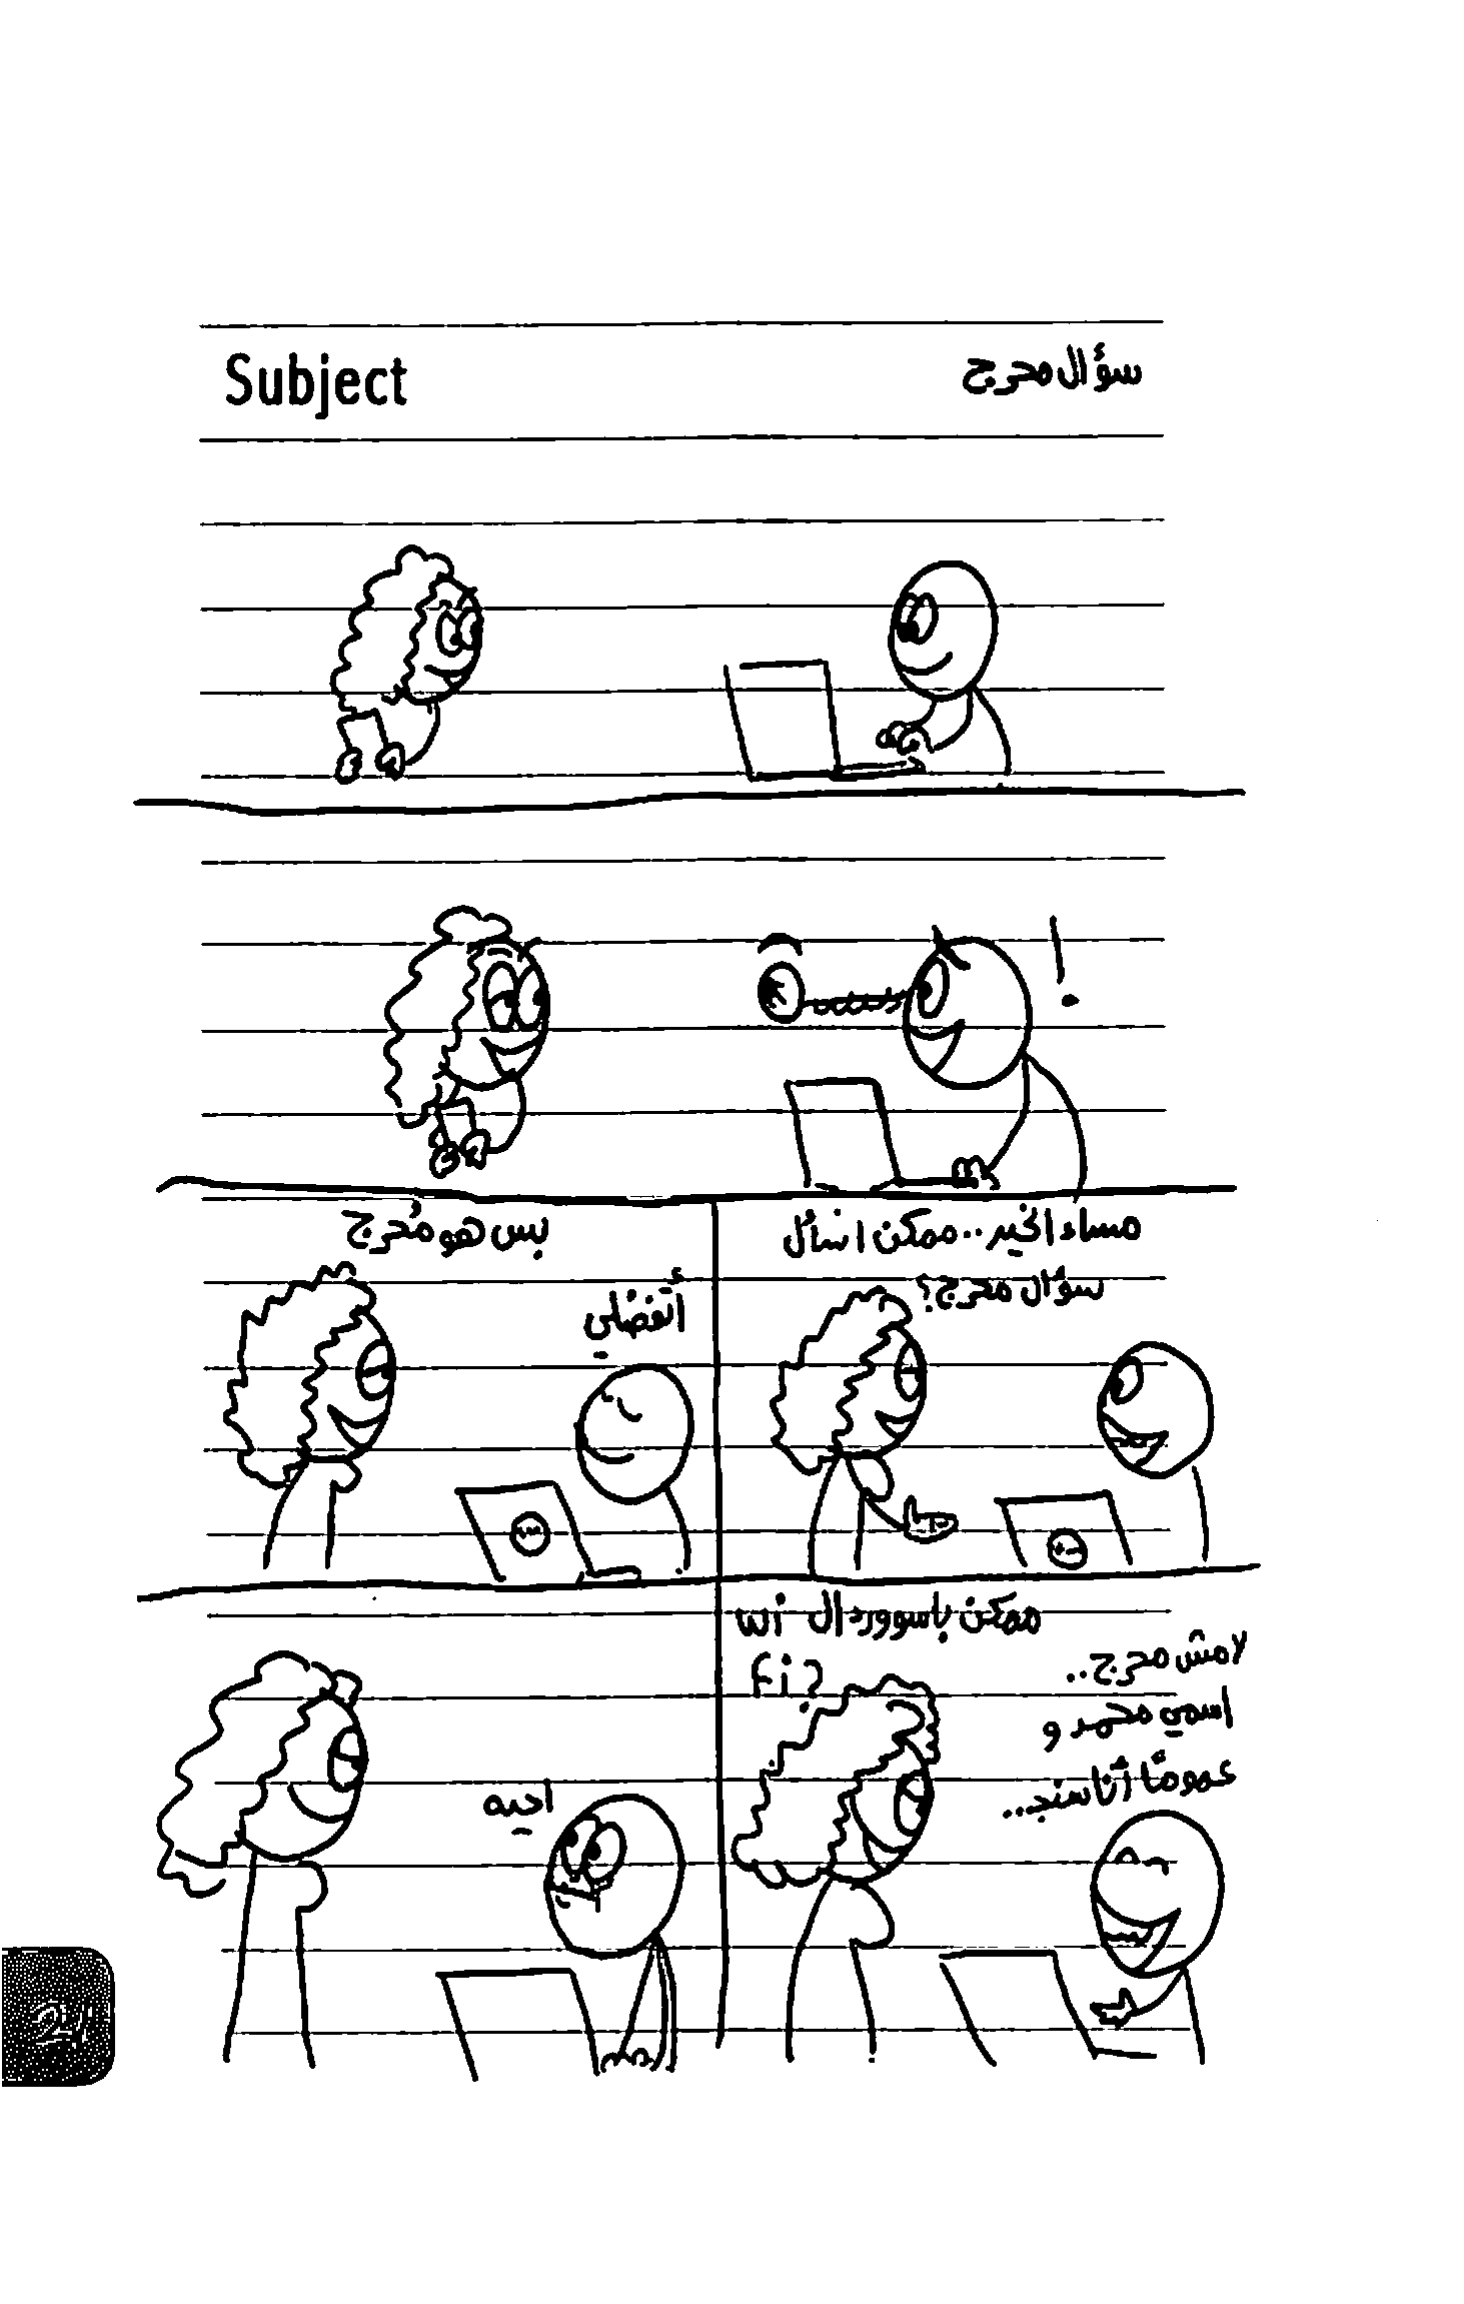 Subject
سؤال محرج
مساء الخير.. ممكن اسأل
سؤال محرج؟
بس هو مُحرج
أتفضلي
ممكن باسوورد ال wi
fi?
لا مش محرج..
اسمي محمد و
عمومًا أنا سنجـ..
احيه
21